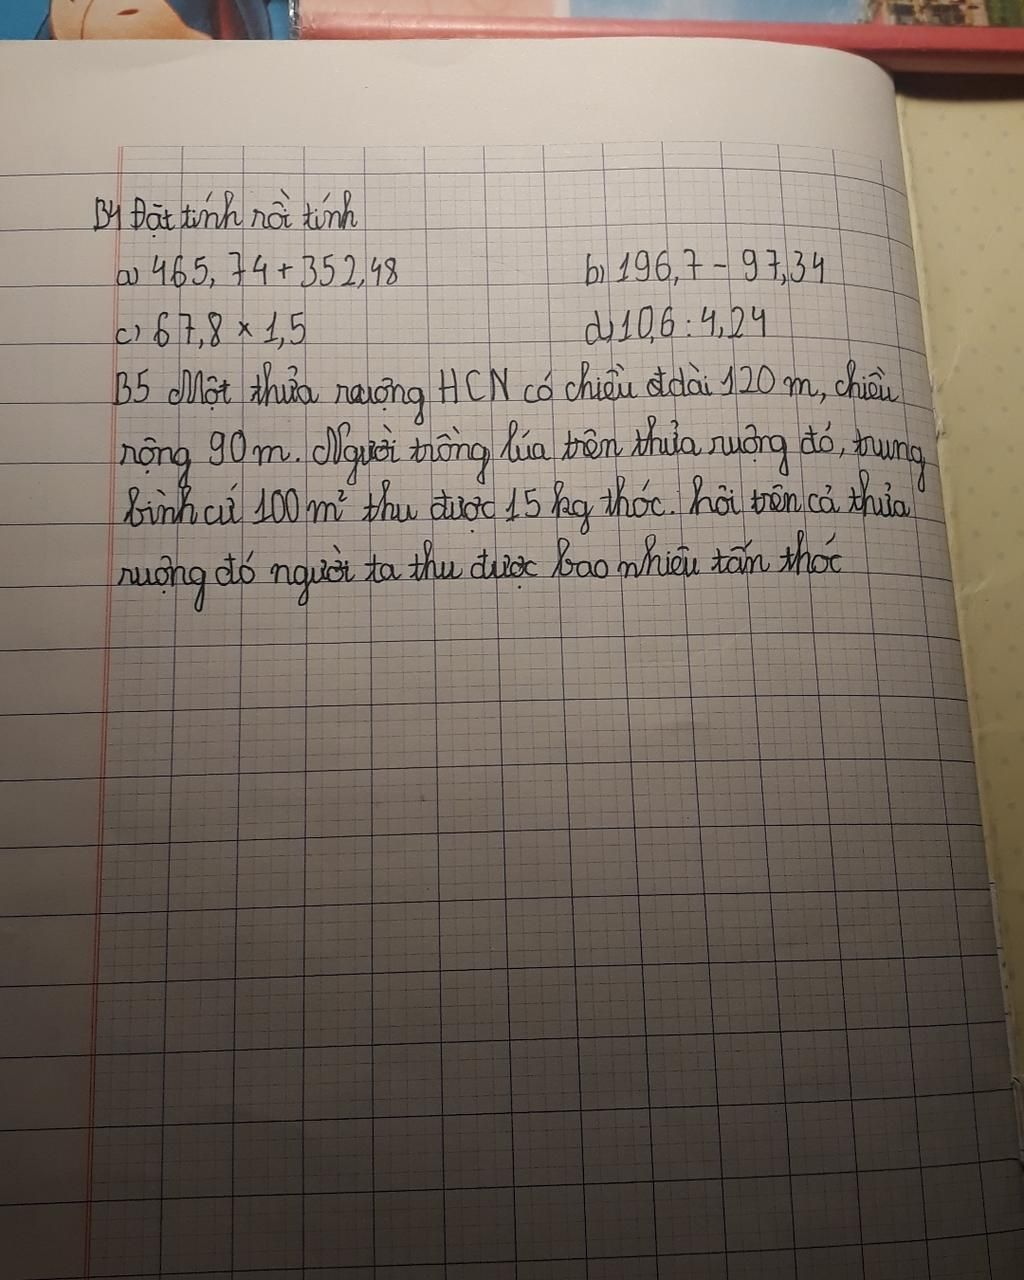 B4 Đặt tính rồi tính
a) 465,74 + 352,48 b) 196,7 - 97,34
c) 67,8 x 1,5 d) 10,6 : 4,24
B5 Một thửa ruộng HCN có chiều ddài 120 m, chiều
rộng 90m. Người trồng lúa trên thửa ruộng đó, trung
bình cứ 100m² thu được 15 kg thóc. hỏi trên cả thửa
ruộng đó người ta thu được bao nhiêu tấn thóc